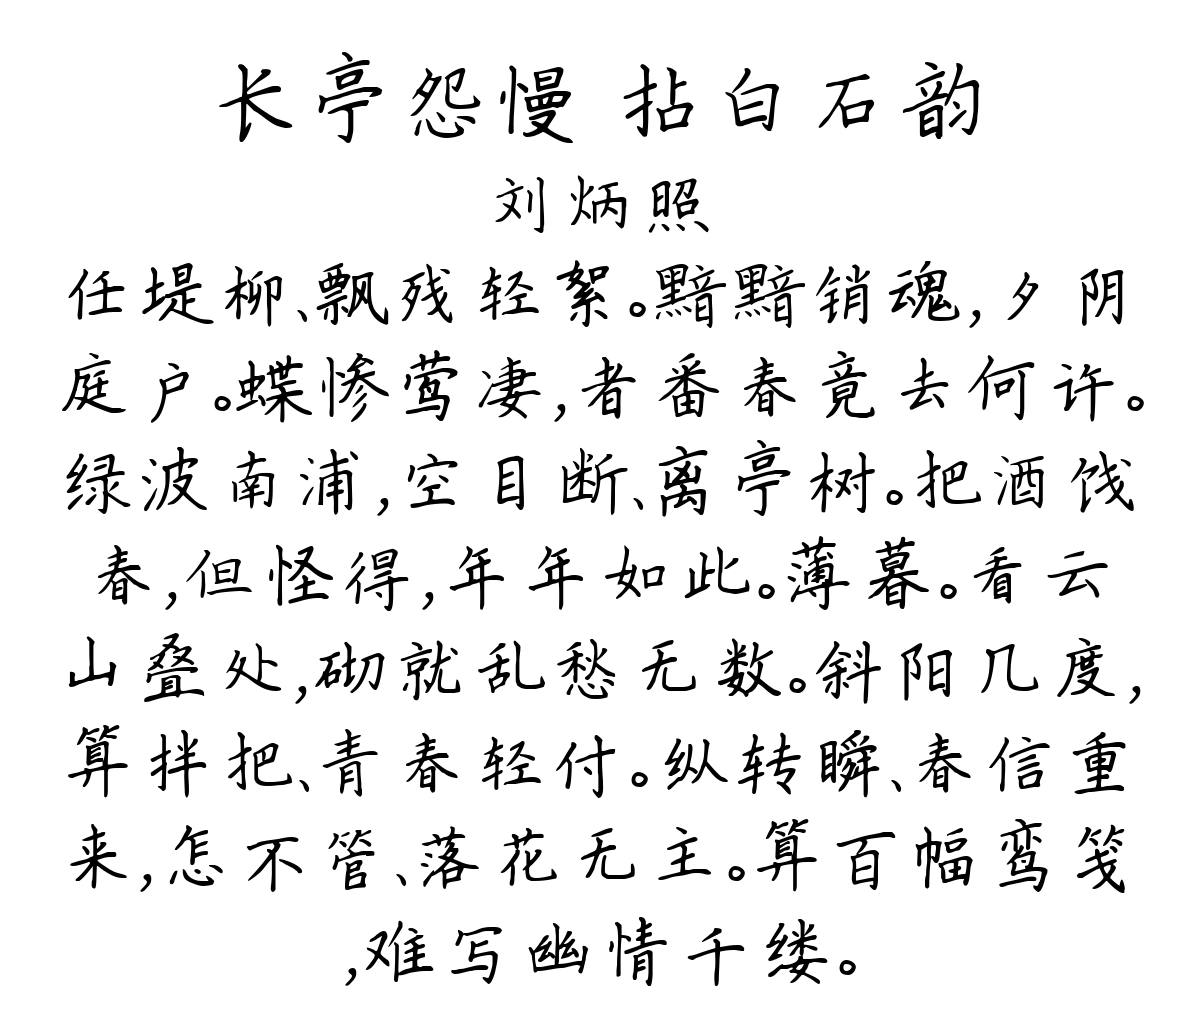 长亭怨慢 拈白石韵
刘炳照
任堤柳、飘残轻絮。黯黯销魂，夕阴
庭户。蝶惨莺凄，者番春竟去何许。
绿波南浦，空目断、离亭树。把酒饯
春，但怪得，年年如此。薄暮。看云
山叠处，砌就乱愁无数。斜阳几度，
算拌把、青春轻付。纵转瞬、春信重
来，怎不管、落花无主。算百幅鸾笺
，难写幽情千缕。